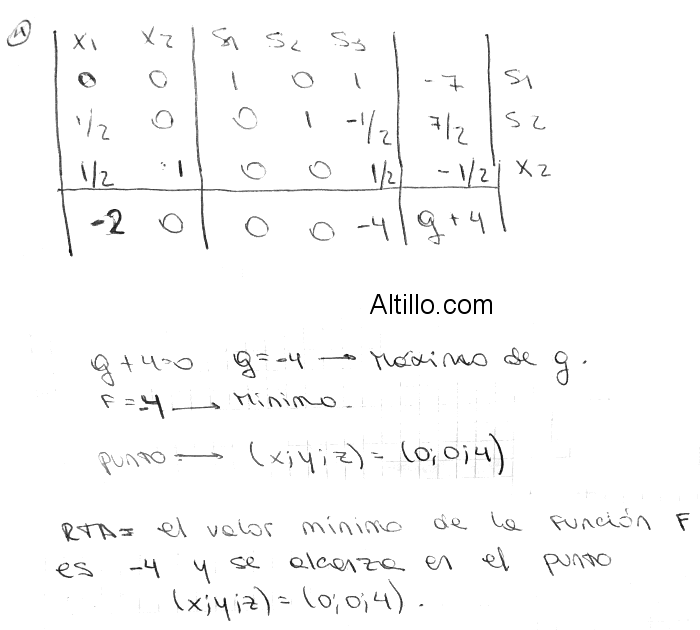 4) x1 x2 s1 s2 s3
0 0 1 0 1 -7 s1
1/2 0 0 1 -1/2 7/2 s2
1/2 1 0 0 1/2 -1/2 x2
-2 0 0 0 -4 g+4
Altillo.com
g+4=0 g=-4 → Máximo de g.
F=-4 → Mínimo.
punto → (x;y;z) = (0;0;4)
RTA= el valor mínimo de la función F
es -4 y se alcanza en el punto
(x;y;z) = (0;0;4).